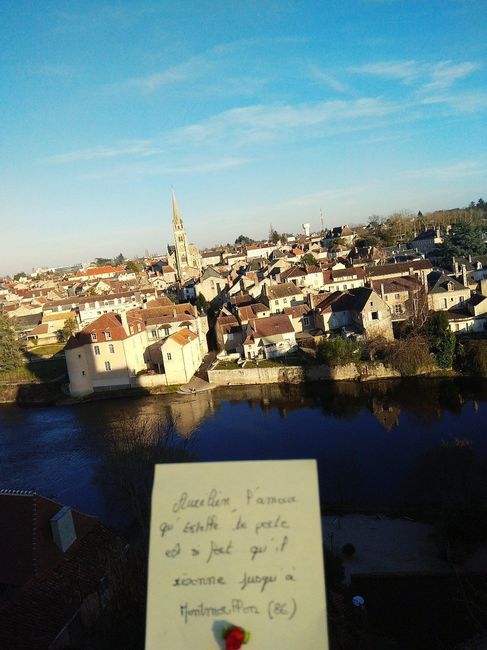 Aurélien l'amour
qu'Estelle te porte
est si fort qu'il
résonne jusqu'à
Montmorillon (86)